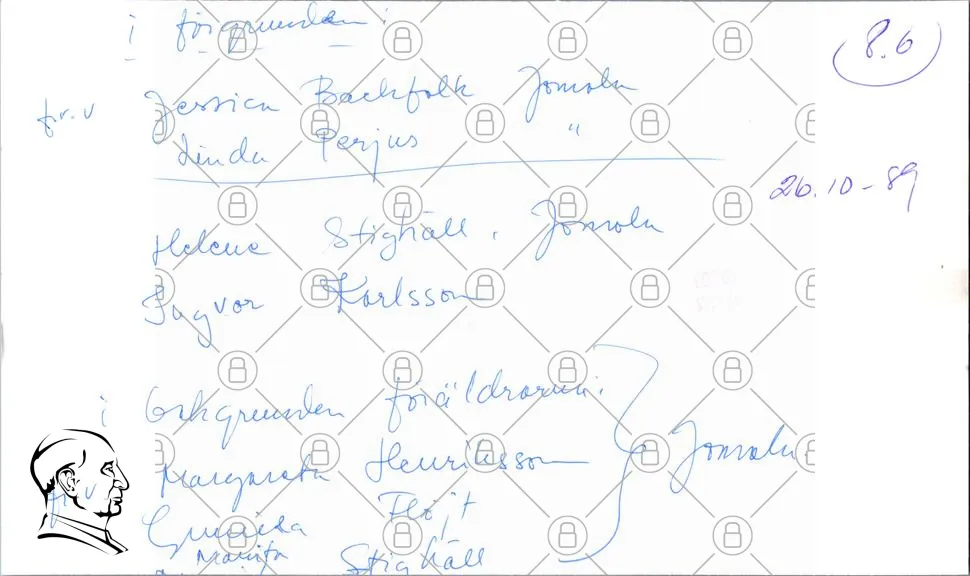 i förgrunden:
8.6
fr.v Jessica Backfolk Jomala
Linda Perjus "
26.10-89
Helene Stighäll, Jomala
Ingvor Karlsson
i bakgrunden föräldrarna:
Margareta Henriksson
Jomala
fr.v Gunilla Flöjt
Marita Stighäll